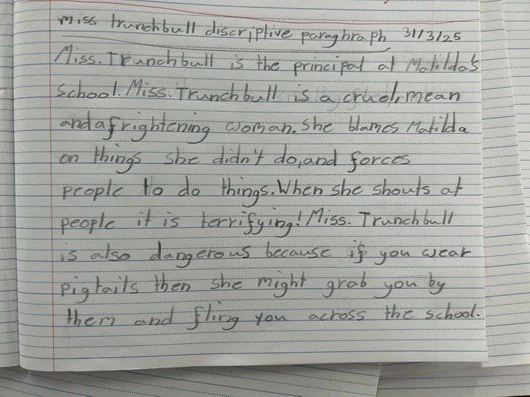 miss trunchbull discriptive paraghraph 31/3/25
Miss.Trunchbull is the principal at Matilda's
school.Miss.Trunchbull is a cruel,mean
and a frightening woman.She blames Matilda
on things she didn't do,and forces
people to do things.When she shouts at
people it is terrifying!Miss.Trunchbull
is also dangerous because if you wear
pigtails then she might grab you by
them and fling you across the school.